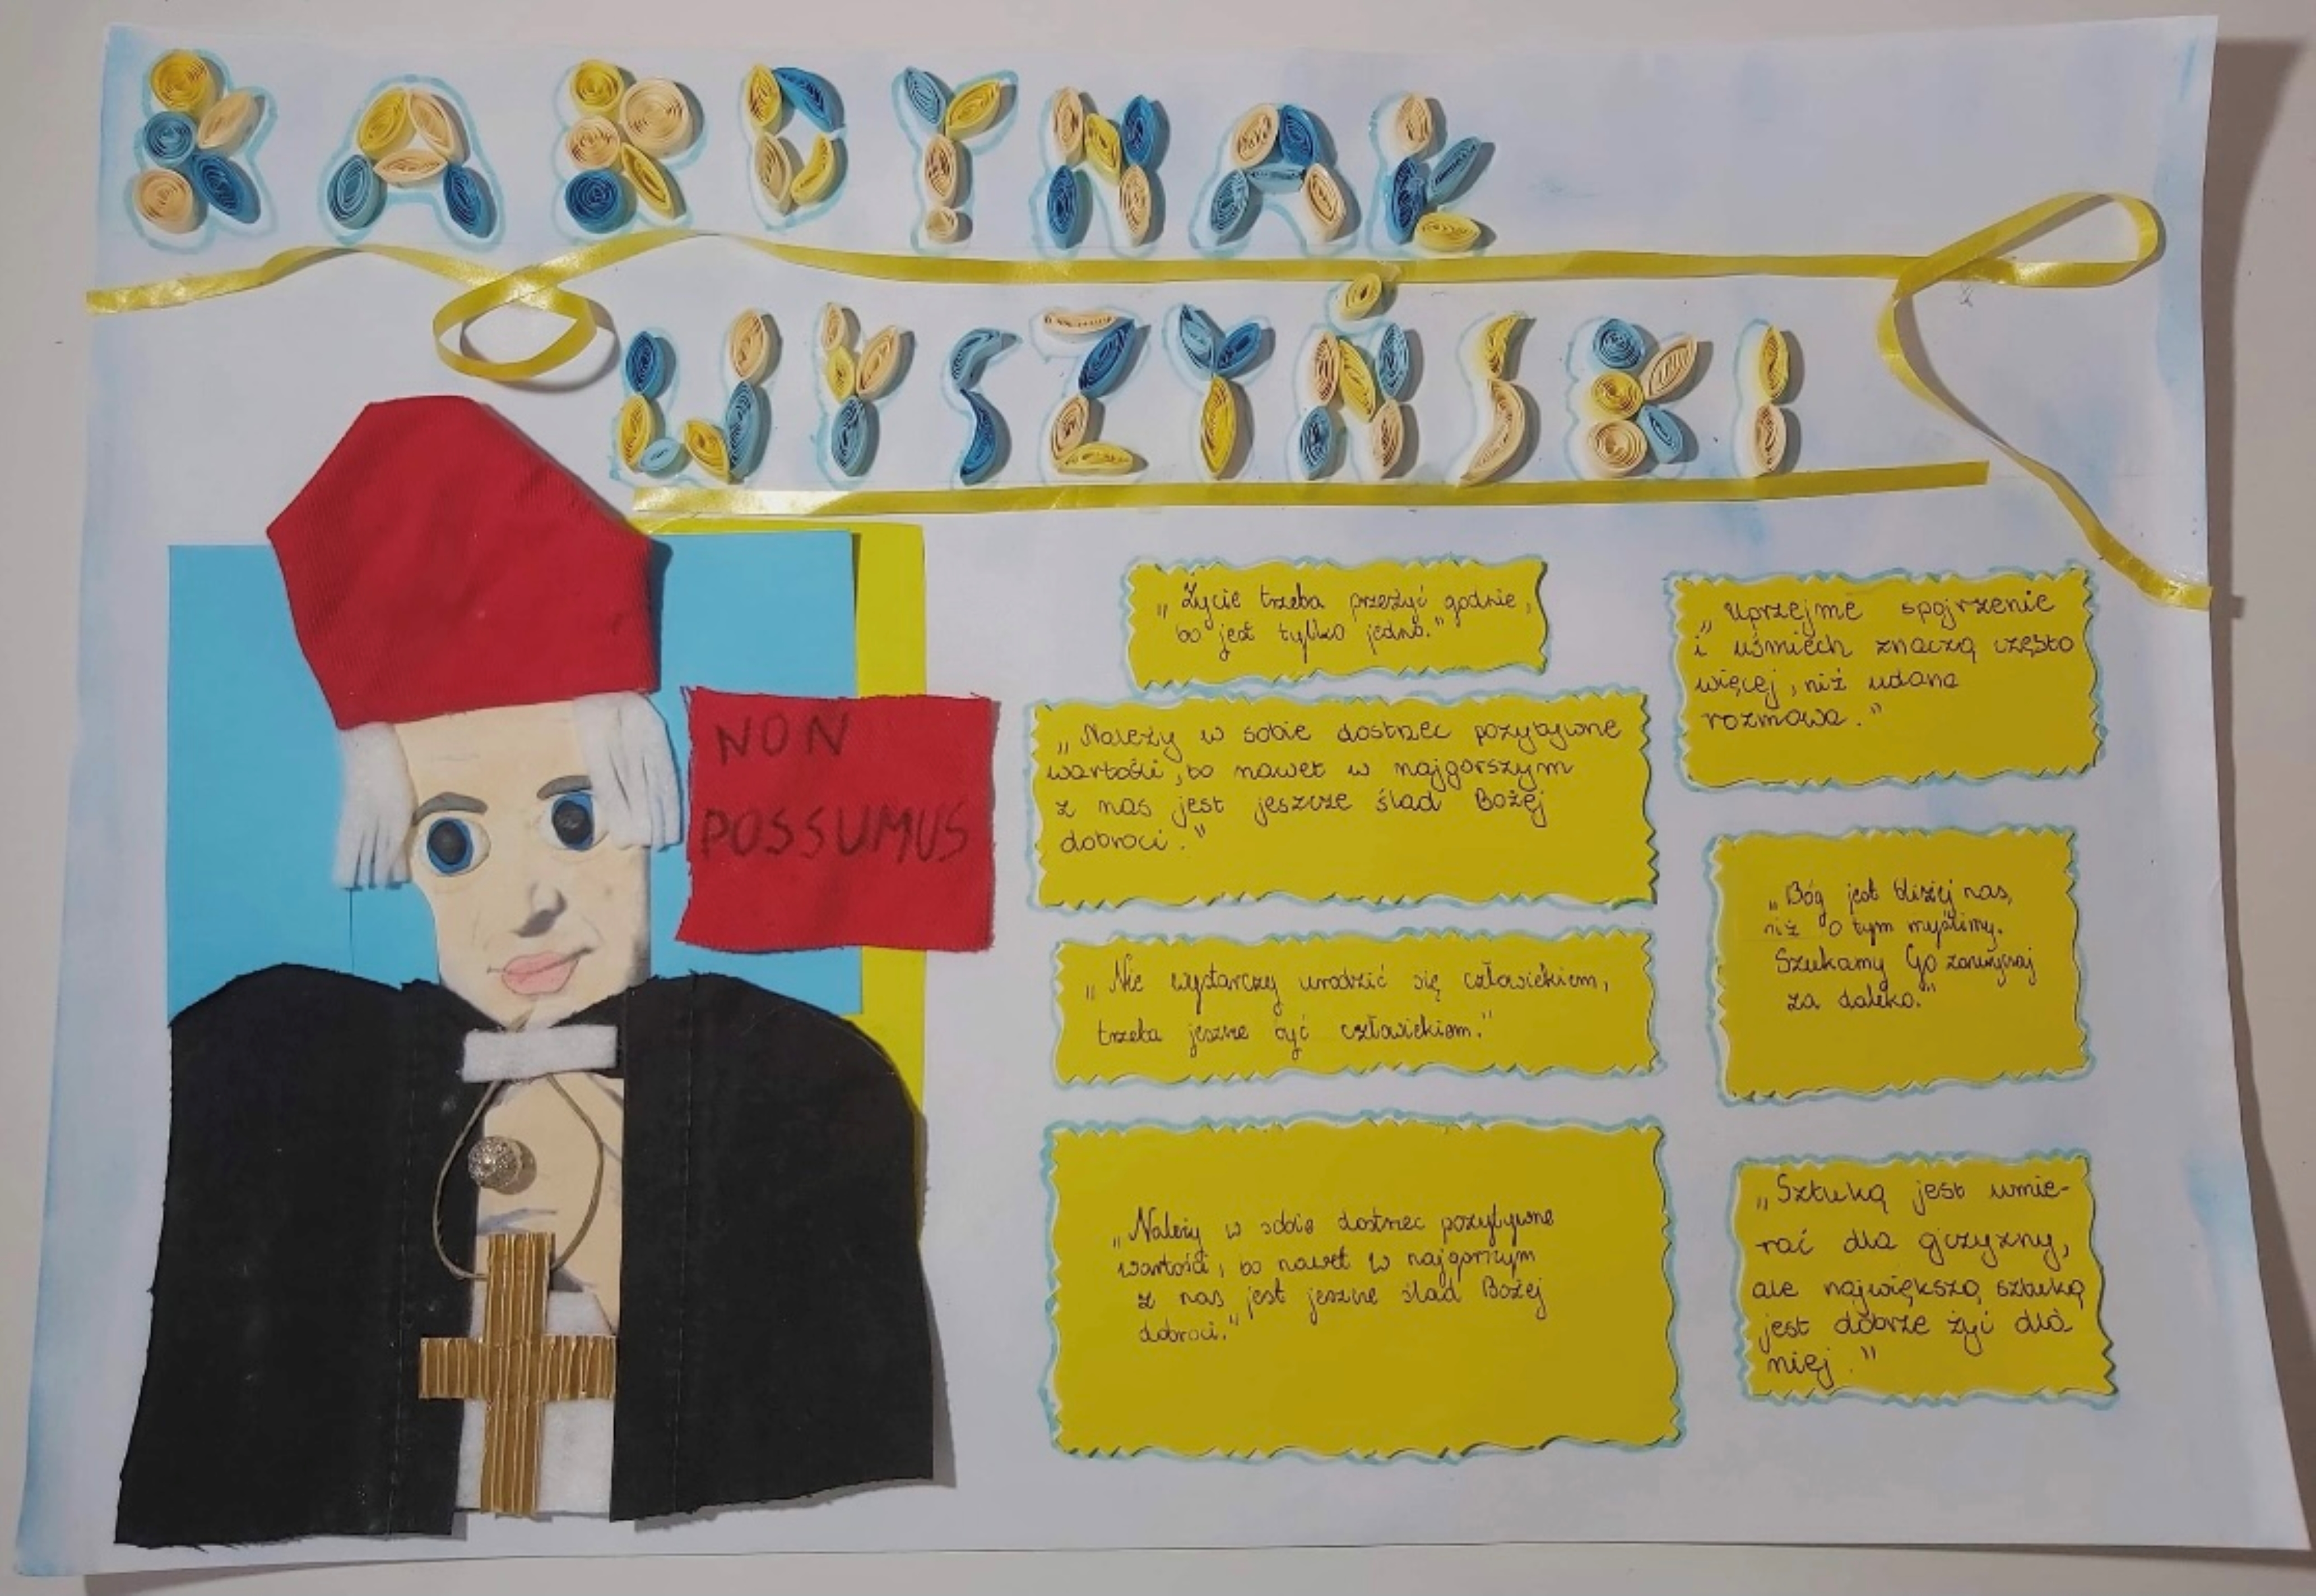 KARDYNAŁ
WYSZYŃSKI
NON
POSSUMUS
„Życie trzeba przeżyć godnie,
bo jest tylko jedno."
„Należy w sobie dostrzec pozytywne
wartości, bo nawet w najgorszym
z nas jest jeszcze ślad Bożej
dobroci."
„Nie wystarczy urodzić się człowiekiem,
trzeba jeszcze być człowiekiem."
„Należy w sobie dostrzec pozytywne
wartości, bo nawet w najgorszym
z nas jest jeszcze ślad Bożej
dobroci."
„Uprzejme spojrzenie
i uśmiech znaczą często
więcej, niż udana
rozmowa."
„Bóg jest bliżej nas,
niż o tym myślimy.
Szukamy Go zazwyczaj
za daleko."
„Sztuką jest umie-
rać dla ojczyzny,
ale największą sztuką
jest dobrze żyć dla
niej."